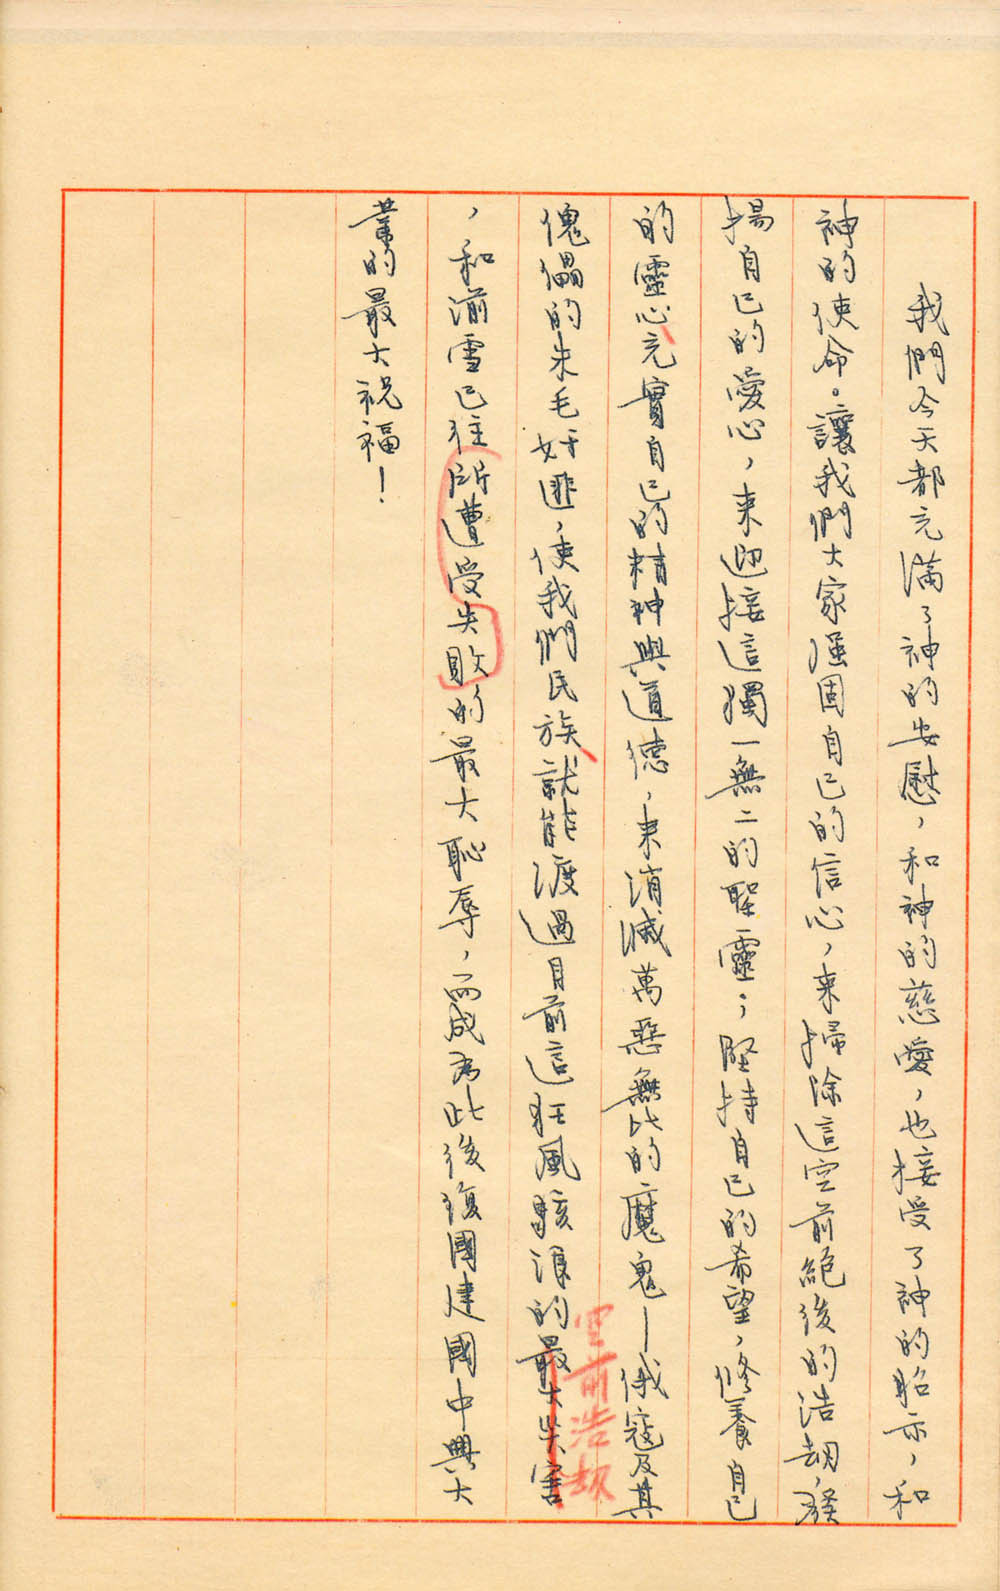 我們今天都充滿了神的安慰，和神的慈愛，也接受了神的昭示，和
神的使命。讓我們大家強固自己的信心，來掃除這空前絕後的浩劫，發
揚自己的愛心，來迎接這獨一無二的聖靈；堅持自己的希望，修養自己
的靈心、充實自己的精神與道德，來消滅萬惡無比的魔鬼—俄寇及其
傀儡的朱毛奸匪，使我們民族、就能渡過目前這狂風駭浪的最大災害
空前浩劫
，和湔雪已往所遭受失敗的最大恥辱，而成為此後復國建國中興大
業的最大祝福！